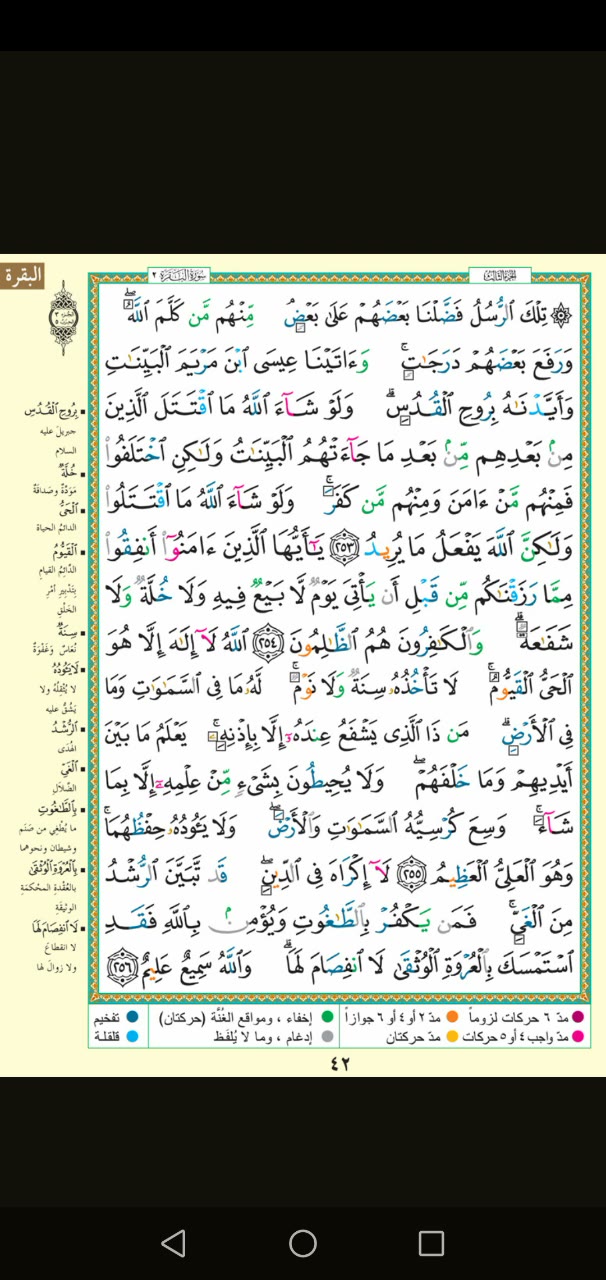 البقرة
سُورَةُ البَقَرَة ٢
الجزء الثالث
تِلْكَ ٱلرُّسُلُ فَضَّلْنَا بَعْضَهُمْ عَلَىٰ بَعْضٍۘ مِّنْهُم مَّن كَلَّمَ ٱللَّهُۖ
وَرَفَعَ بَعْضَهُمْ دَرَجَٰتٍۚ وَءَاتَيْنَا عِيسَى ٱبْنَ مَرْيَمَ ٱلْبَيِّنَٰتِ
وَأَيَّدْنَٰهُ بِرُوحِ ٱلْقُدُسِۗ وَلَوْ شَآءَ ٱللَّهُ مَا ٱقْتَتَلَ ٱلَّذِينَ
مِنۢ بَعْدِهِم مِّنۢ بَعْدِ مَا جَآءَتْهُمُ ٱلْبَيِّنَٰتُ وَلَٰكِنِ ٱخْتَلَفُوا۟
فَمِنْهُم مَّنْ ءَامَنَ وَمِنْهُم مَّن كَفَرَۚ وَلَوْ شَآءَ ٱللَّهُ مَا ٱقْتَتَلُوا۟
وَلَٰكِنَّ ٱللَّهَ يَفْعَلُ مَا يُرِيدُ ٢٥٣ يَٰٓأَيُّهَا ٱلَّذِينَ ءَامَنُوٓا۟ أَنفِقُوا۟
مِمَّا رَزَقْنَٰكُم مِّن قَبْلِ أَن يَأْتِىَ يَوْمٌ لَّا بَيْعٌ فِيهِ وَلَا خُلَّةٌ وَلَا
شَفَٰعَةٌۗ وَٱلْكَٰفِرُونَ هُمُ ٱلظَّٰلِمُونَ ٢٥٤ ٱللَّهُ لَآ إِلَٰهَ إِلَّا هُوَ
ٱلْحَىُّ ٱلْقَيُّومُۚ لَا تَأْخُذُهُۥ سِنَةٌ وَلَا نَوْمٌۚ لَّهُۥ مَا فِى ٱلسَّمَٰوَٰتِ وَمَا
فِى ٱلْأَرْضِۗ مَن ذَا ٱلَّذِى يَشْفَعُ عِندَهُۥٓ إِلَّا بِإِذْنِهِۦۚ يَعْلَمُ مَا بَيْنَ
أَيْدِيهِمْ وَمَا خَلْفَهُمْۖ وَلَا يُحِيطُونَ بِشَىْءٍ مِّنْ عِلْمِهِۦٓ إِلَّا بِمَا
شَآءَۚ وَسِعَ كُرْسِيُّهُ ٱلسَّمَٰوَٰتِ وَٱلْأَرْضَۖ وَلَا يَـُٔودُهُۥ حِفْظُهُمَاۚ
وَهُوَ ٱلْعَلِىُّ ٱلْعَظِيمُ ٢٥٥ لَآ إِكْرَاهَ فِى ٱلدِّينِۖ قَد تَّبَيَّنَ ٱلرُّشْدُ
مِنَ ٱلْغَىِّۚ فَمَن يَكْفُرْ بِٱلطَّٰغُوتِ وَيُؤْمِنۢ بِٱللَّهِ فَقَدِ
ٱسْتَمْسَكَ بِٱلْعُرْوَةِ ٱلْوُثْقَىٰ لَا ٱنفِصَامَ لَهَاۗ وَٱللَّهُ سَمِيعٌ عَلِيمٌ ٢٥٦
بِرُوحِ ٱلْقُدُسِ
جبريل عليه
السلام
خُلَّةٌ
مَوَدَّةٌ وصَداقةٌ
ٱلْحَىُّ
الدائمُ الحياة
ٱلْقَيُّومُ
الدَّائِمُ القيام
بِتَدْبِيرِ أَمْرِ
الخَلْقِ
سِنَةٌ
نُعَاسٌ وَغَفْوَةٌ
لَا يَـُٔودُهُۥ
لا يُثْقِلُهُ ولا
يَشُقُّ عليه
ٱلرُّشْدُ
الهُدَى
ٱلْغَىِّ
الضَّلَال
بِٱلطَّٰغُوتِ
ما يُطْغِي من صَنَم
وشيطان ونحوهما
بِٱلْعُرْوَةِ ٱلْوُثْقَىٰ
بالعُقْدةِ المحكمَة
الوثيقَةِ
لَا ٱنفِصَامَ لَهَا
لا انقطاعَ
ولا زوالَ لها
مدّ ٦ حركات لزوماً مدّ ٢ أو ٤ أو ٦ جوازاً إخفاء ، ومواقع الغُنَّة (حركتان) تفخيم
مدّ واجب ٤ أو ٥ حركات مدّ حركتان إدغام ، وما لا يُلفَظ قلقلة
٤٢